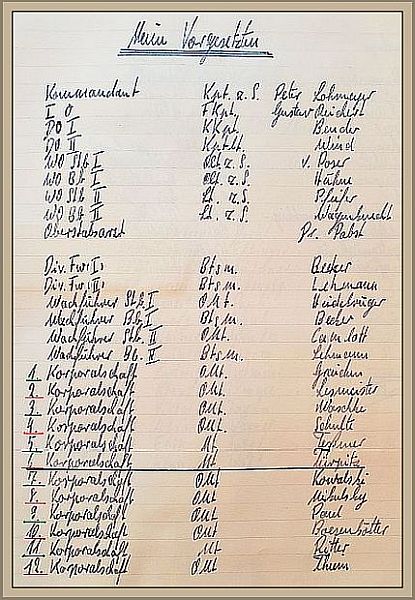 Meine Vorgesetzten
Kommandant Kpt. z. S. Peter Lohmeyer
I O F Kpt. Gustav Reichert
DO I KKpt. Bender
DO II Kptlt. Wind
WO Stb I Olt z. S. v. Poser
WO Bb I Olt z. S. Hühne
WO Stb II Lt. z. S. Pfeifer
WO Bb II Lt. z. S. Wagenknecht
Oberstabsarzt Dr. Pabst
Div. Fw. I: Btsm. Becker
Div. Fw. II: Btsm. Lehmann
Wachführer Stb. I OMt. Heidekrüger
Wachführer Bb. I Btsm. Becker
Wachführer Stb. II OMt.
Wachführer Bb. II Btsm. Lehmann
1. Korporalschaft OMt.
2. Korporalschaft OMt. Lesmeister
3. Korporalschaft OMt. Maschke
4. Korporalschaft OMt. Schulte
5. Korporalschaft Mt
6. Korporalschaft Mt Tirpitz
7. Korporalschaft OMt Kowalski
8. Korporalschaft OMt Mikulsky
9. Korporalschaft OMt Paul
10. Korporalschaft OMt
11. Korporalschaft Mt Ritter
12. Korporalschaft OMt Thum